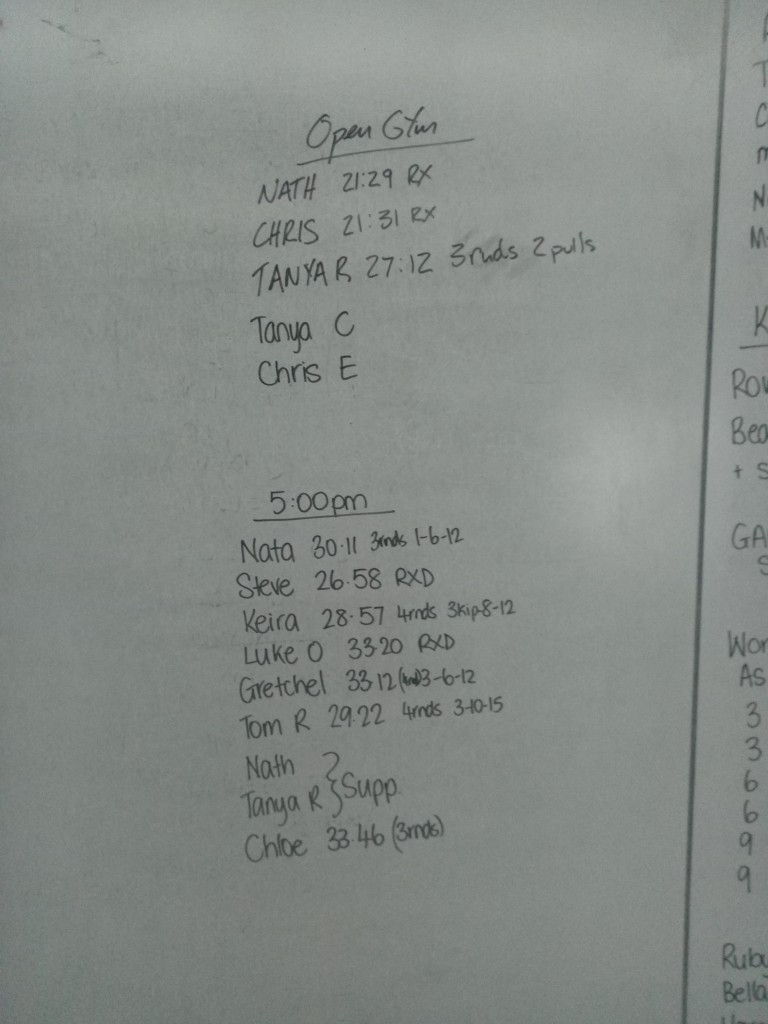 Open Gym
NATH 21:29 RX
CHRIS 21:31 RX
TANYA R 27:12 3rnds 2 pulls
Tanya C
Chris E
5:00pm
Nata 30.11 3rnds 1-6-12
Steve 26.58 RXD
Keira 28.57 4rnds 3kip-8-12
Luke O 33.20 RXD
Gretchel 33.12 3-6-12
Tom R 29.22 4rnds 3-10-15
Nath
Tanya R } Supp
Chloe 33.46 (3rnds)
T
C
m
N
M
K
Row
Bea
+ S
GA
S
Wor
AS
3
3
6
6
9
9
Ruby
Bella